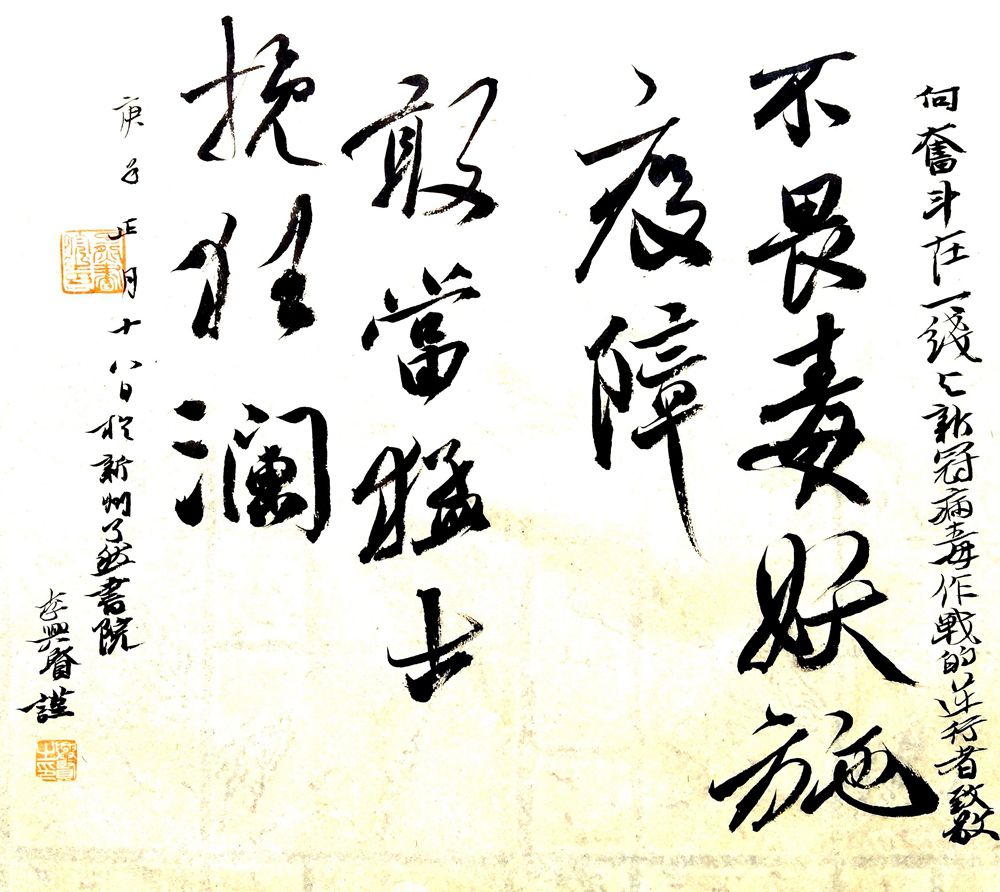 向奮斗在一线与新冠病毒作戰的逆行者致敬
不畏毒妖施
疫障
敢當猛士
挽狂澜
庚子正月十八日於新州了然書院
李興督謹